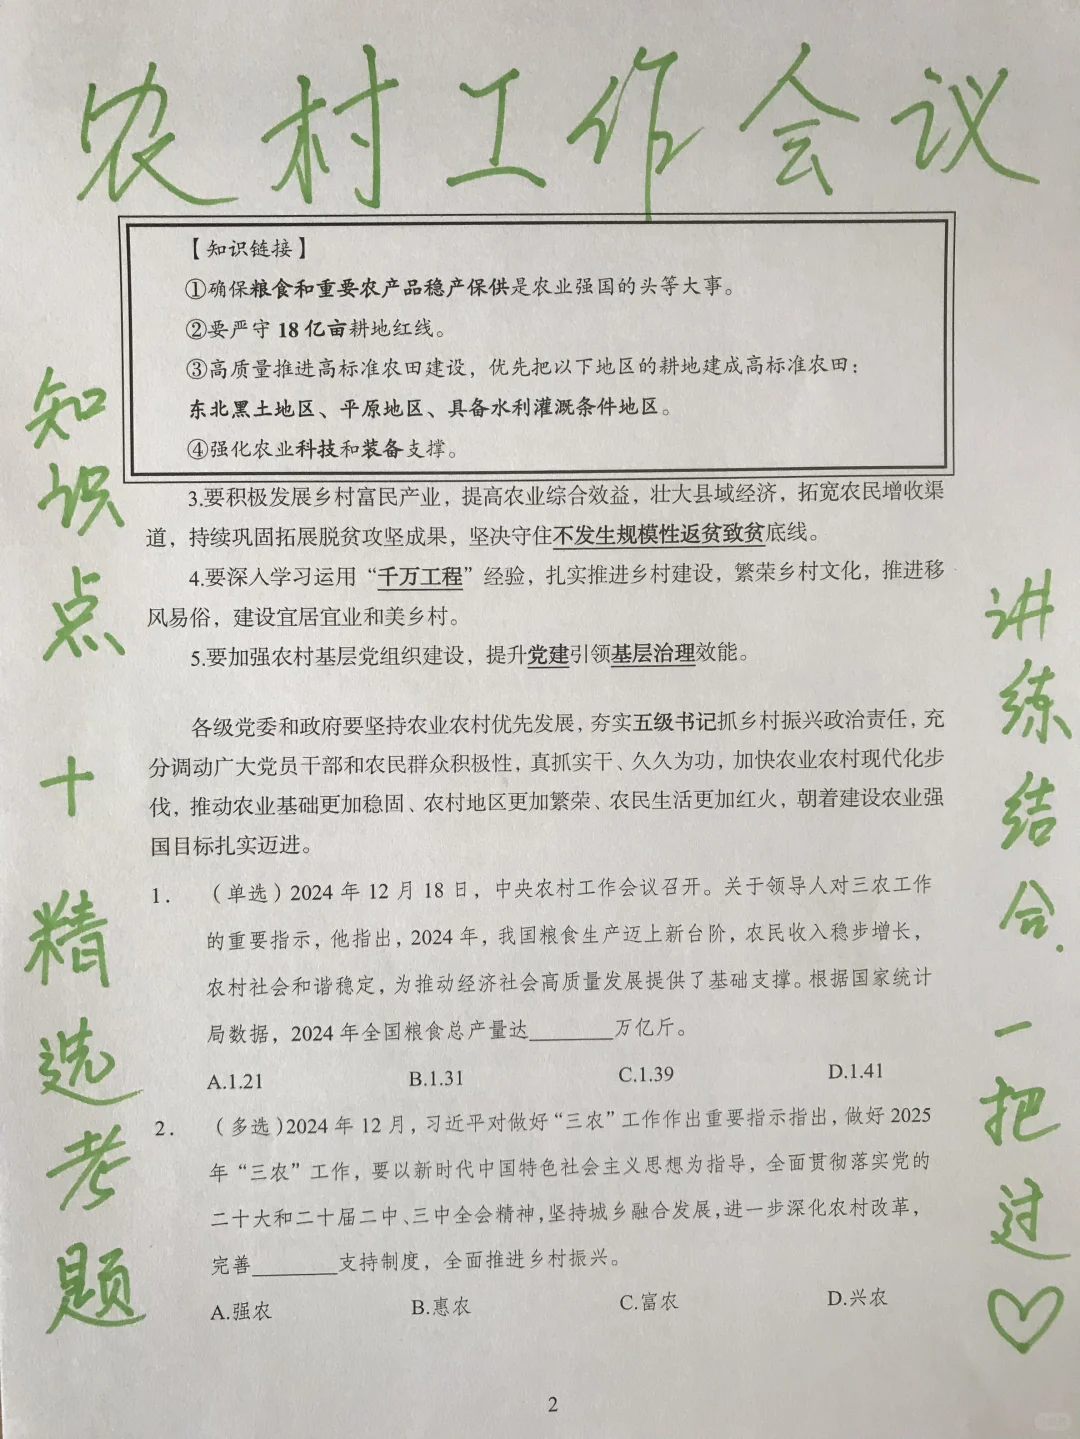 农村工作会议
【知识链接】
①确保粮食和重要农产品稳产保供是农业强国的头等大事。
②要严守 18 亿亩耕地红线。
③高质量推进高标准农田建设，优先把以下地区的耕地建成高标准农田：
东北黑土地区、平原地区、具备水利灌溉条件地区。
④强化农业科技和装备支撑。
3.要积极发展乡村富民产业，提高农业综合效益，壮大县域经济，拓宽农民增收渠
道，持续巩固拓展脱贫攻坚成果，坚决守住不发生规模性返贫致贫底线。
4.要深入学习运用“千万工程”经验，扎实推进乡村建设，繁荣乡村文化，推进移
风易俗，建设宜居宜业和美乡村。
5.要加强农村基层党组织建设，提升党建引领基层治理效能。
各级党委和政府要坚持农业农村优先发展，夯实五级书记抓乡村振兴政治责任，充
分调动广大党员干部和农民群众积极性，真抓实干、久久为功，加快农业农村现代化步
伐，推动农业基础更加稳固、农村地区更加繁荣、农民生活更加红火，朝着建设农业强
国目标扎实迈进。
1. （单选）2024 年 12 月 18 日，中央农村工作会议召开。关于领导人对三农工作
的重要指示，他指出，2024 年，我国粮食生产迈上新台阶，农民收入稳步增长，
农村社会和谐稳定，为推动经济社会高质量发展提供了基础支撑。根据国家统计
局数据，2024 年全国粮食总产量达________万亿斤。
A.1.21 B.1.31 C.1.39 D.1.41
2. （多选）2024 年 12 月，习近平对做好“三农”工作作出重要指示指出，做好 2025
年“三农”工作，要以新时代中国特色社会主义思想为指导，全面贯彻落实党的
二十大和二十届二中、三中全会精神，坚持城乡融合发展，进一步深化农村改革，
完善________支持制度，全面推进乡村振兴。
A.强农 B.惠农 C.富农 D.兴农
2
知识点十精选考题
讲练结合.一把过♡
小红书